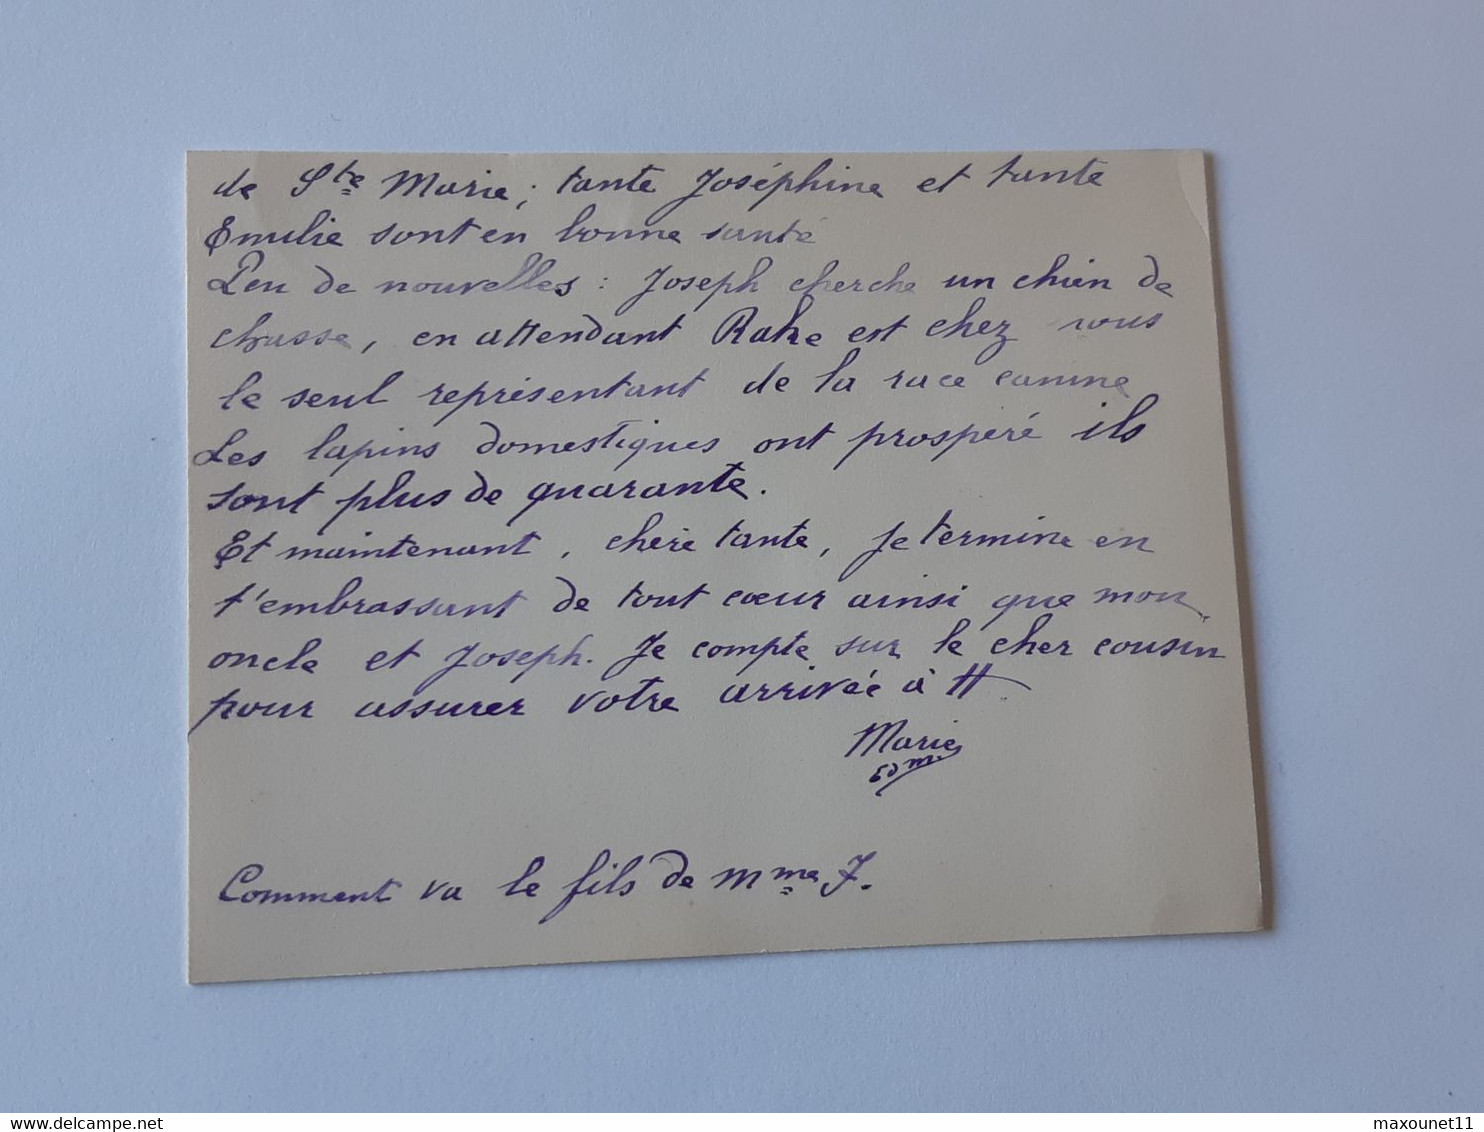 de Ste Marie; tante Joséphine et tante
Emilie sont en bonne santé
Peu de nouvelles : Joseph cherche un chien de
chasse, en attendant est chez nous
le seul représentant de la race canine
Les lapins domestiques ont prospéré ils
sont plus de quarante.
Et maintenant, chère tante, je termine en
t'embrassant de tout cœur ainsi que mon
oncle et Joseph. Je compte sur le cher cousin
pour assurer votre arrivée à H
Marie
Comment va le fils de Mme J.
maxounet11
delcampe.net